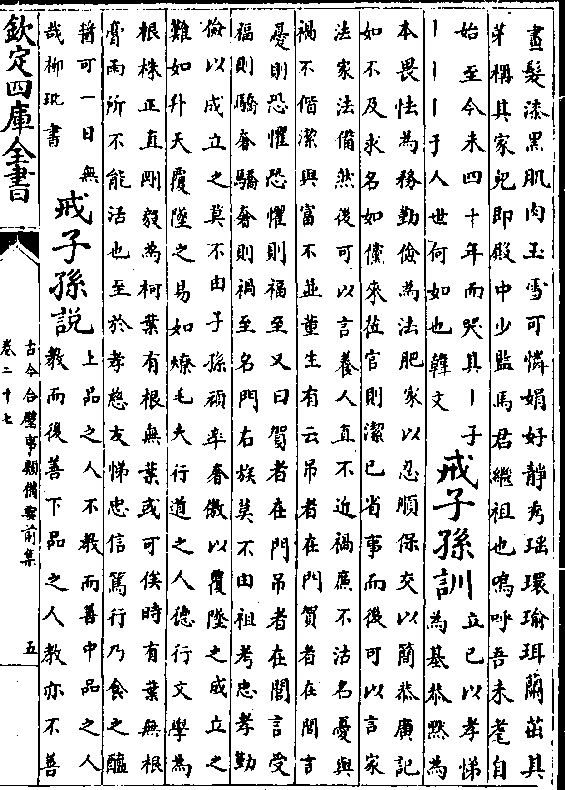 畫髮漆黒肌肉玉雪可憐娟好靜秀瑶環瑜珥蘭茁其
芽稱其家兒即殿中少監馬君繼祖也嗚呼吾未耄自
始至今未四十年而哭其丨子
丨丨丨于人世何如也韓文
戒子孫訓
立已以孝悌
為基恭黙為
本畏怯為務勤儉為法肥家以忍順保交以簡恭廣記
如不及求名如儻來莅官則潔已省事而後可以言家
法家法備然後可以言養人直不近禍㢘不沽名憂與
禍不偕潔與富不並董生有云吊者在門賀者在閭言
憂則恐懼恐懼則福至又曰賀者在門吊者在閭言受
福則驕奢驕奢則禍至名門右族莫不由祖考忠孝勤
儉以成立之莫不由子孫頑率奢傲以覆墜之成立之
難如升天覆墜之易如燎毛夫行道之人徳行文學為
根株正直剛毅為柯葉有根無葉或可俟時有葉無根
膏雨所不能活也至於孝慈友悌忠信篤行乃食之醢
醤可一日無
哉柳玭書
戒子孫説
上品之人不教而善中品之人
教而後善下品之人教亦不善
欽定四庫全書
古今合璧事類備要前集
卷二十七
五